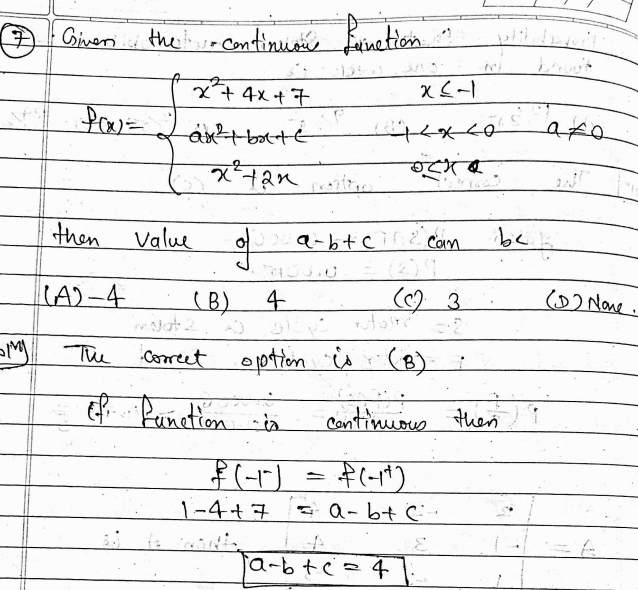 7 Given the continuous function
f(x) = { x² + 4x + 7 x ≤ -1
ax² + bx + c -1 < x < 0 a ≠ 0
x² + 2x 0 ≤ x
then value of a-b+c can be
(A) -4 (B) 4 (C) 3 (D) None.
The correct option is (B)
If function is continuous then
f(-1⁻) = f(-1⁺)
1-4+7 = a-b+c
a-b+c = 4